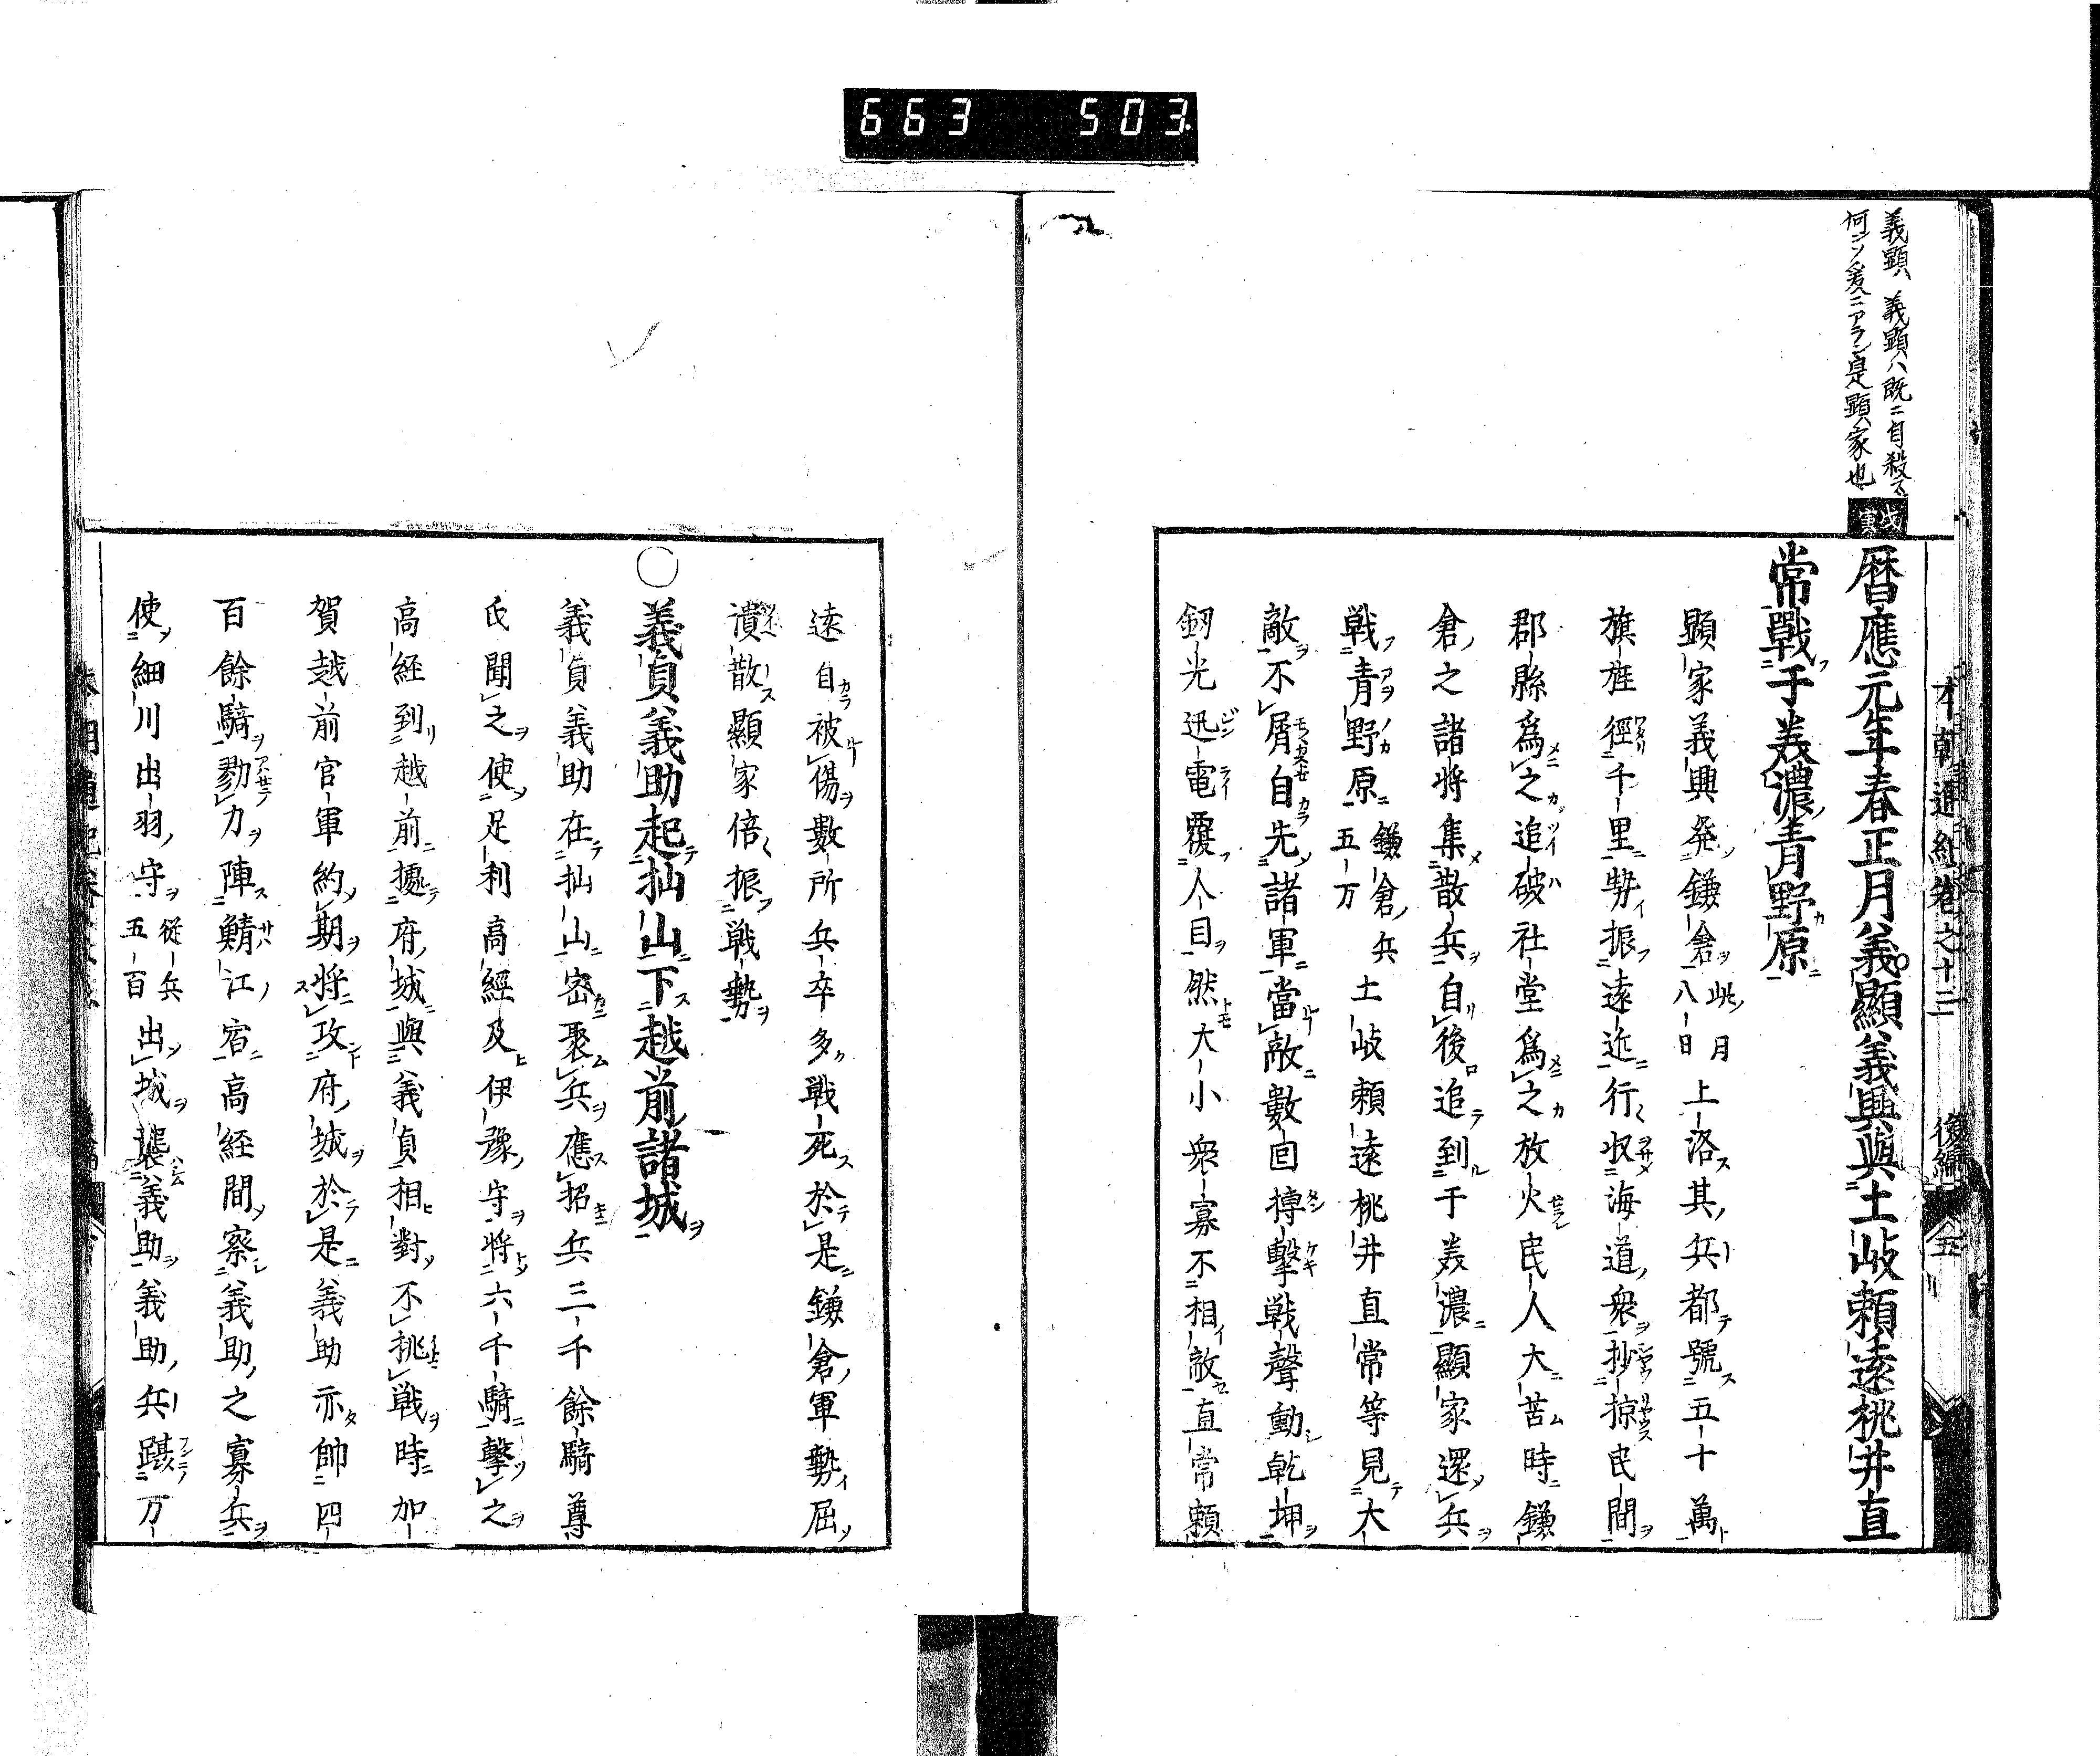 663 503
義顕、義顕ハ既ニ自殺ス
何ゾ爰ニアラン是顕家也
戊寅
本朝通紀巻之十三 後編 五
暦應元年春正月義顯義興與土岐頼遠桃井直
常戰于美濃青野原
顕家義興発鎌倉此月八日上洛其兵都號五十萬
旗旌徑千里勢振遠近行收海道衆抄掠民間
郡縣為之追破社堂為之放火民人大苦時鎌
倉之諸将集散兵自後追到于美濃顕家還兵
戦青野原鎌倉兵五万土岐頼遠桃井直常等見大
敵不屑自先諸軍當敵數回摶擊戦聲動乾坤
釼光迅電覆人目然大小衆寡不相敵直常頼
遠自被傷數所兵卒多戦死於是鎌倉軍勢屈
潰散顯家倍振戦勢
○義貞義助起杣山下越前諸城
義貞義助在杣山密聚兵應招兵三千餘騎尊
氏聞之使足利高經及伊豫守将六千騎擊之
高経到越前據府城與義貞相對不挑戦時加
賀越前官軍約期将攻府城於是義助亦帥四
百餘騎勠力陣鯖江宿高経間察義助之寡兵
使細川出羽守従兵五百出城襲義助義助兵踸万